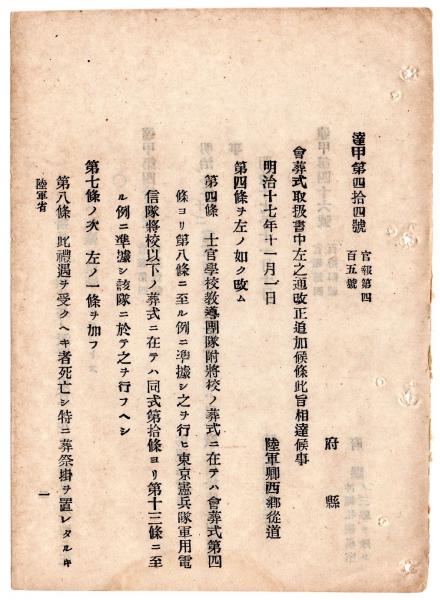 達甲第四拾四號 官報第四百五號
府縣
會葬式取扱書中左之通改正追加候條此旨相達候事
明治十七年十一月一日 陸軍卿西郷從道
第四條ヲ左ノ如ク改ム
第四條 士官學校敎導團隊附將校ノ葬式ニ在テハ會葬式第四
條ヨリ第八條ニ至ル例ニ準據シ之ヲ行ヒ東京憲兵隊軍用電
信隊將校以下ノ葬式ニ在テハ同式第拾條ヨリ第十三條ニ至
ル例ニ準據シ該隊ニ於テ之ヲ行フヘシ
第七條ノ次ヘ左ノ一條ヲ加フ
第八條 此禮遇ヲ受クヘキ者死亡シ特ニ葬祭掛ヲ置レタルキ
陸軍省
一